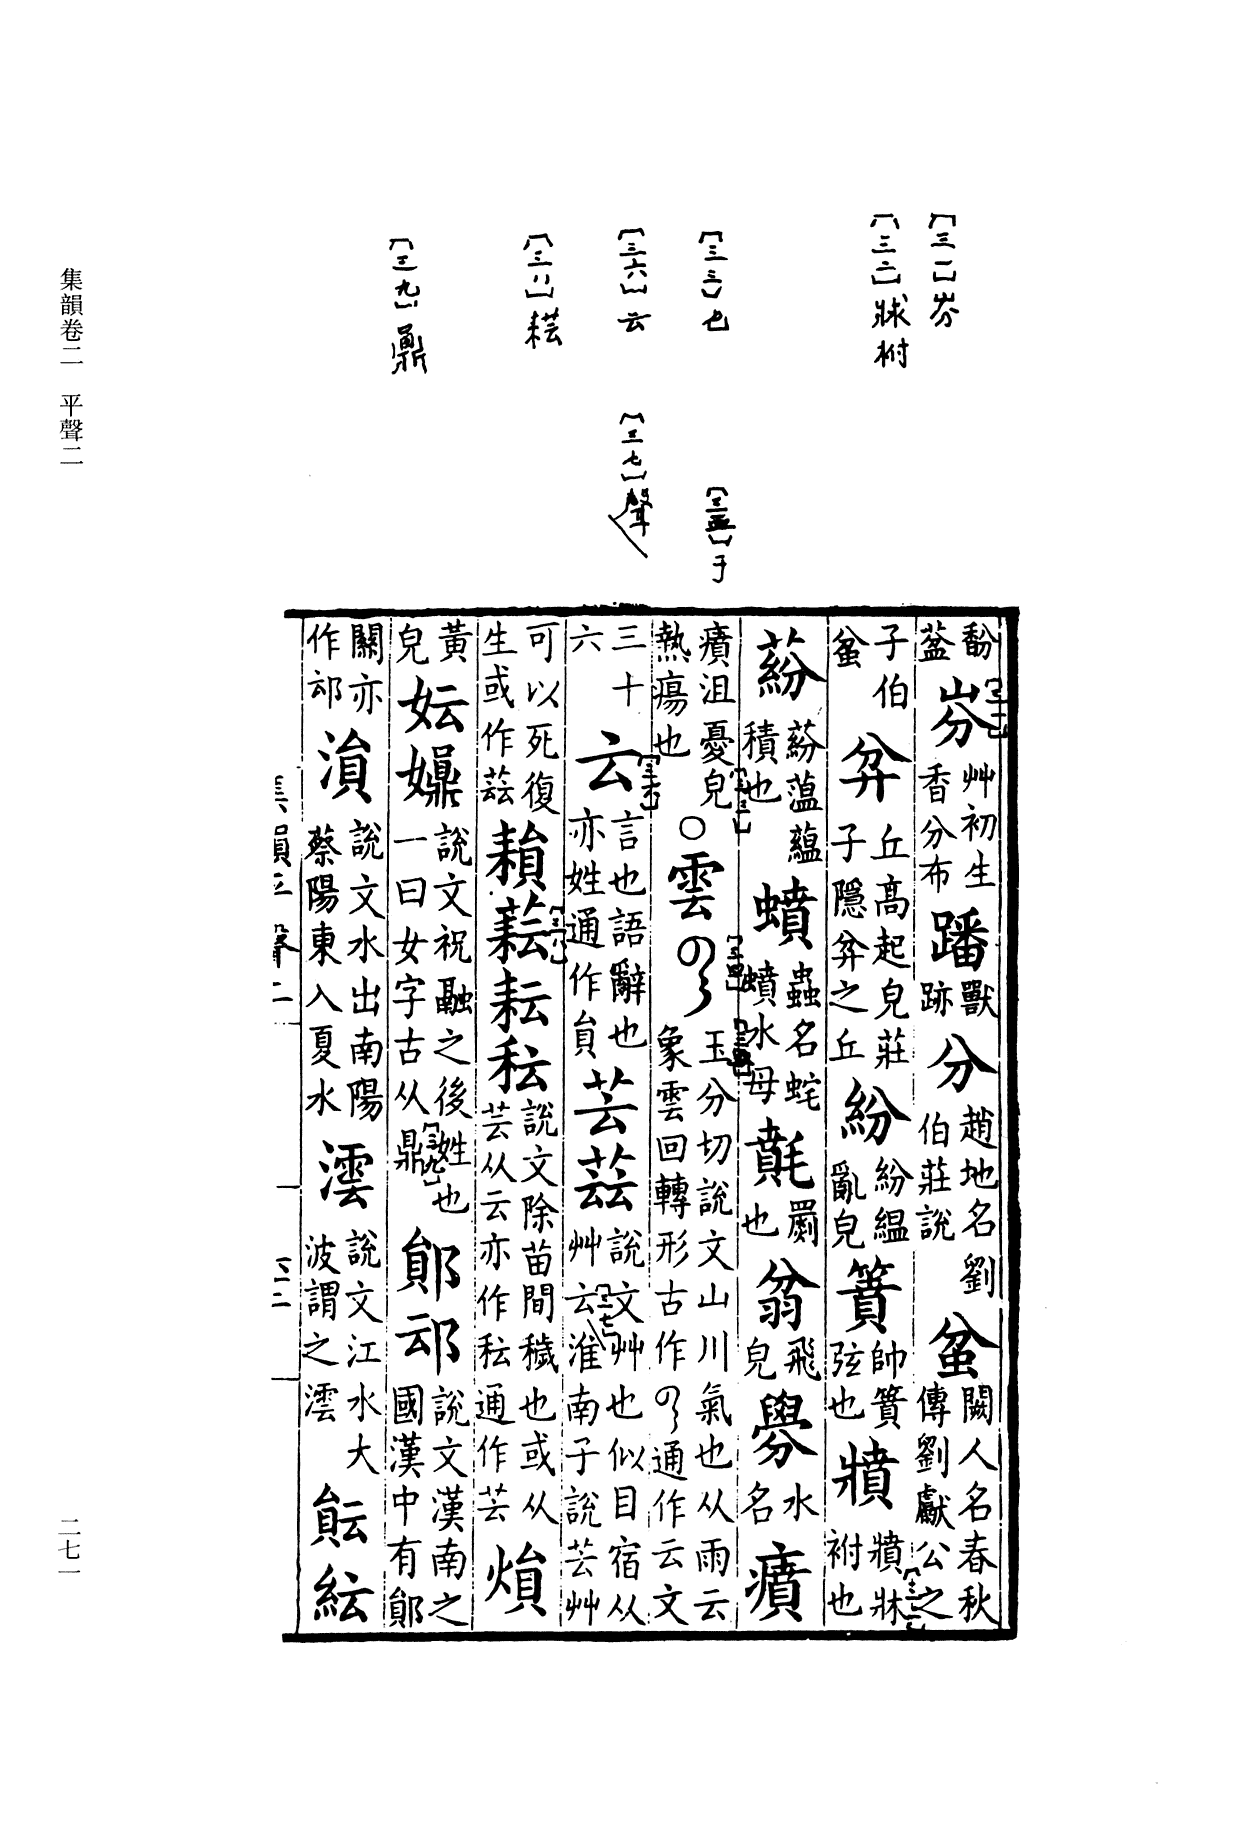 〔三一〕岎
〔三二〕牀柎
〔三三〕也
〔三五〕于
〔三六〕云
〔三七〕聲
〔三八〕耘
〔三九〕鼎
馚葢岎艸初生香分布蹯獸跡分趙地名劉伯莊說蚠闕人名春秋傳劉獻公之
子伯蚠弅丘高起皃莊子隱弅之丘紛紛縕亂皃簣帥簣弦也
紛蕰蘊積也蟥蟲名蛇蟥水母罽也翁飛皃水名
沮憂皃熱瘍也○雲玉分切說文山川氣也从雨云象雲回轉形古作通作云文
三十六云言也語辭也亦姓通作員芸蕓說文艸也似目宿从艸云淮南子說芸艸
可以死復生或作蕓䎙耘秐說文除苗間穢也或从芸从云亦作秐通作芸熉
黃皃妘說文祝融之後姓也一曰女字古从鼎鄖䢵說文漢南之國漢中有鄖
關亦作䢵溳說文水出南陽蔡陽東入夏水澐說文江水大波謂之澐䆬紜
集韻平聲二
集韻卷二　平聲二
二七一